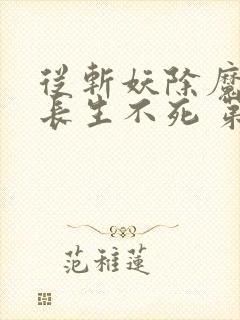 從斬妖除魔
長生不死 第
范稚蓮